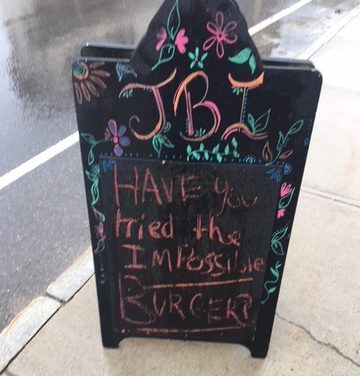 JBI
HAVE you
tried the
IMPossible
BURGER?